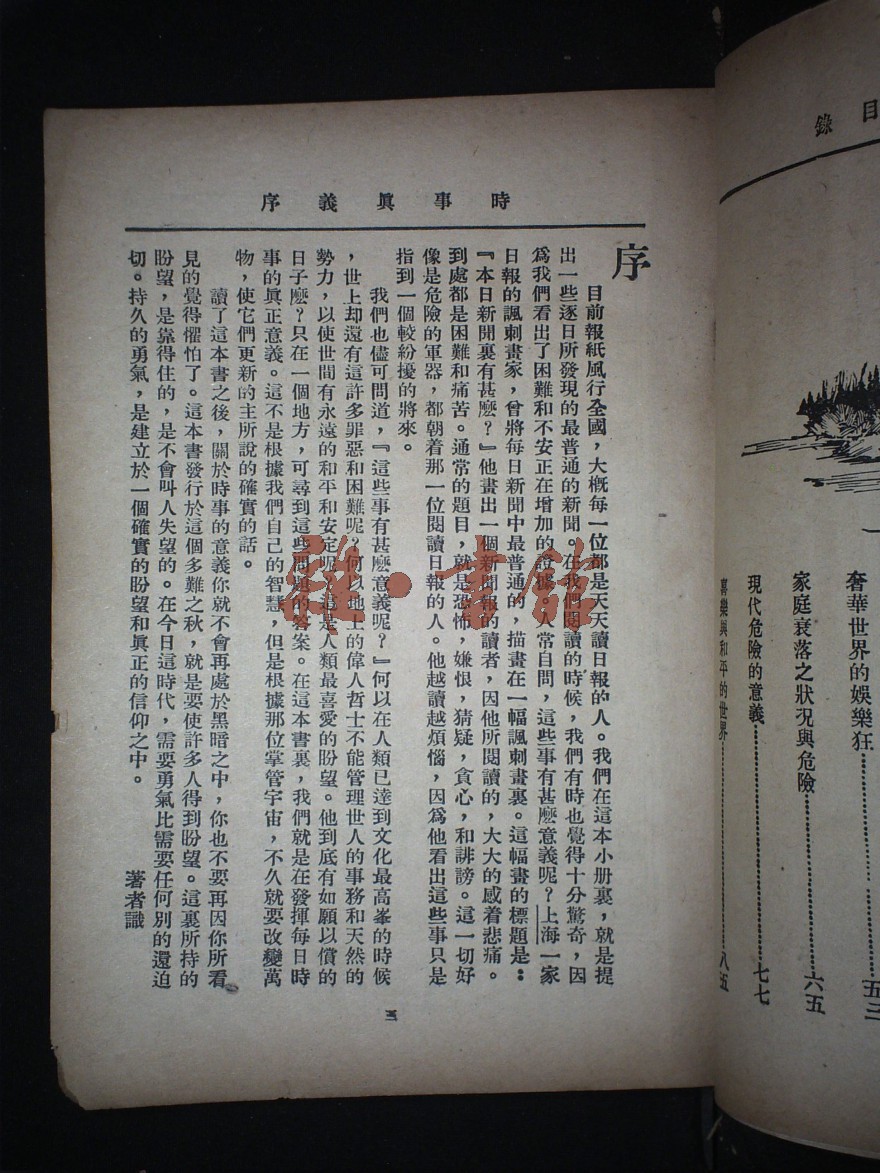 目錄
奢華世界的娛樂狂……五三
家庭衰落之狀況與危險……六五
現代危險的意義……七七
喜樂與和平的世界……八五
時事眞義序
序
目前報紙風行全國，大槪每一位都是天天讀日報的人。我們在這本小册裏，就是提
出一些逐日所發現的最普通的新聞。在我們閱讀的時候，我們有時也覺得十分驚奇，因
爲我們看出了困難和不安正在增加的證據。人常自問，這些事有甚麽意義呢？上海一家
日報的諷刺畫家，曾將每日新聞中最普通的，描畫在一幅諷刺畫裏。這幅畫的標題是：
『本日新聞裏有甚麽？』他畫出一個新聞報的讀者，因他所閱讀的，大大的感着悲痛。
到處都是困難和痛苦。通常的題目，就是恐怖，嫌恨，猜疑，貪心，和誹謗。這一切好
像是危險的軍器，都朝着那一位閱讀日報的人。他越讀越煩惱，因爲他看出這些事只是
指到一個較紛擾的將來。
我們也儘可問道，『這些事有甚麽意義呢？』何以在人類已達到文化最高峯的時候
，世上却還有這許多罪惡和困難呢？何以地上的偉人哲士不能管理世人的事務和天然的
勢力，以使世間有永遠的和平和安定呢？這是人類最喜愛的盼望。他到底有如願以償的
日子麽？只在一個地方，可尋到這些問題的答案。在這本書裏，我們就是在發揮每日時
事的眞正意義。這不是根據我們自己的智慧，但是根據那位掌管宇宙，不久就要改變萬
物，使它們更新的主所說的確實的話。
讀了這本書之後，關於時事的意義你就不會再處於黑暗之中，你也不要再因你所看
見的覺得懼怕了。這本書發行於這個多難之秋，就是要使許多人得到盼望。這裏所持的
盼望，是靠得住的，是不會叫人失望的。在今日這時代，需要勇氣比需要任何別的還迫
切。持久的勇氣，是建立於一個確實的盼望和眞正的信仰之中。
著者識
三
雜·書館